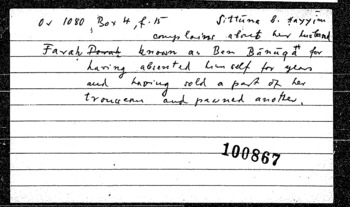 Or 1080, Box 4, f. 15 Sittūna b. Ḥayyim
complains about her husband
Faraḥ known as Ben Bānūqā for
having absented himself for years
and having sold a part of her
trousseau and pawned another.
100867